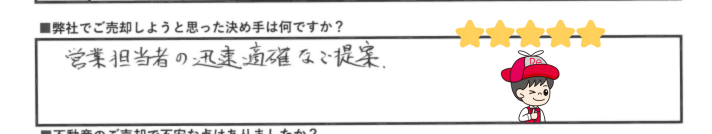 ■弊社でご売却しようと思った決め手は何ですか？
営業担当者の迅速適確なご提案.
■不動産のご売却で不安な点はありましたか？